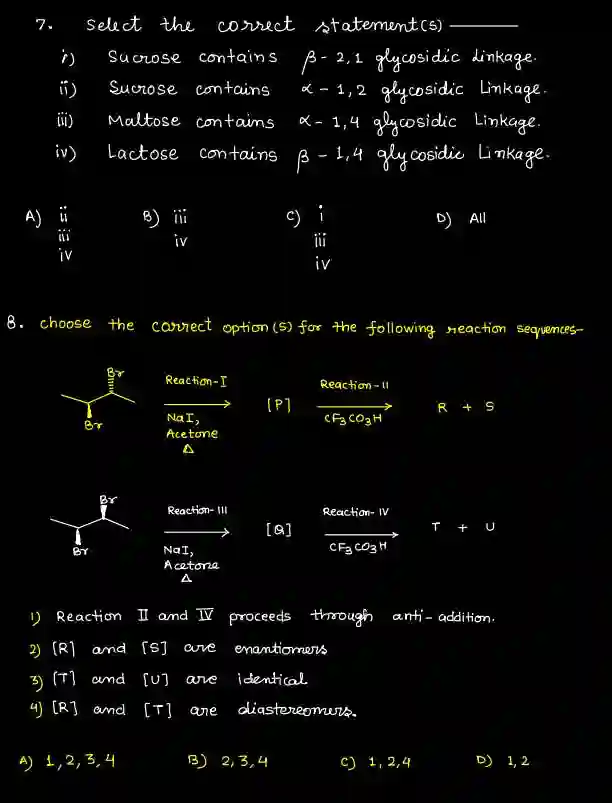 7. Select the correct statement(s) ———
i) Sucrose contains β-2,1 glycosidic Linkage.
ii) Sucrose contains α-1,2 glycosidic Linkage.
iii) Maltose contains α-1,4 glycosidic Linkage.
iv) Lactose contains β-1,4 glycosidic Linkage.
A) ii B) iii C) i D) All
iii iv iii
iv iv
8. choose the correct option(s) for the following reaction sequences-
Br
Reaction-I Reaction-II
[P] R + S
Br NaI, CF3CO3H
Acetone
Δ
Br Reaction-III Reaction-IV
[Q] T + U
Br NaI, CF3CO3H
Acetone
Δ
1) Reaction II and IV proceeds through anti-addition.
2) [R] and [S] are enantiomers
3) [T] and [U] are identical
4) [R] and [T] are diastereomers.
A) 1,2,3,4 B) 2,3,4 C) 1,2,4 D) 1,2